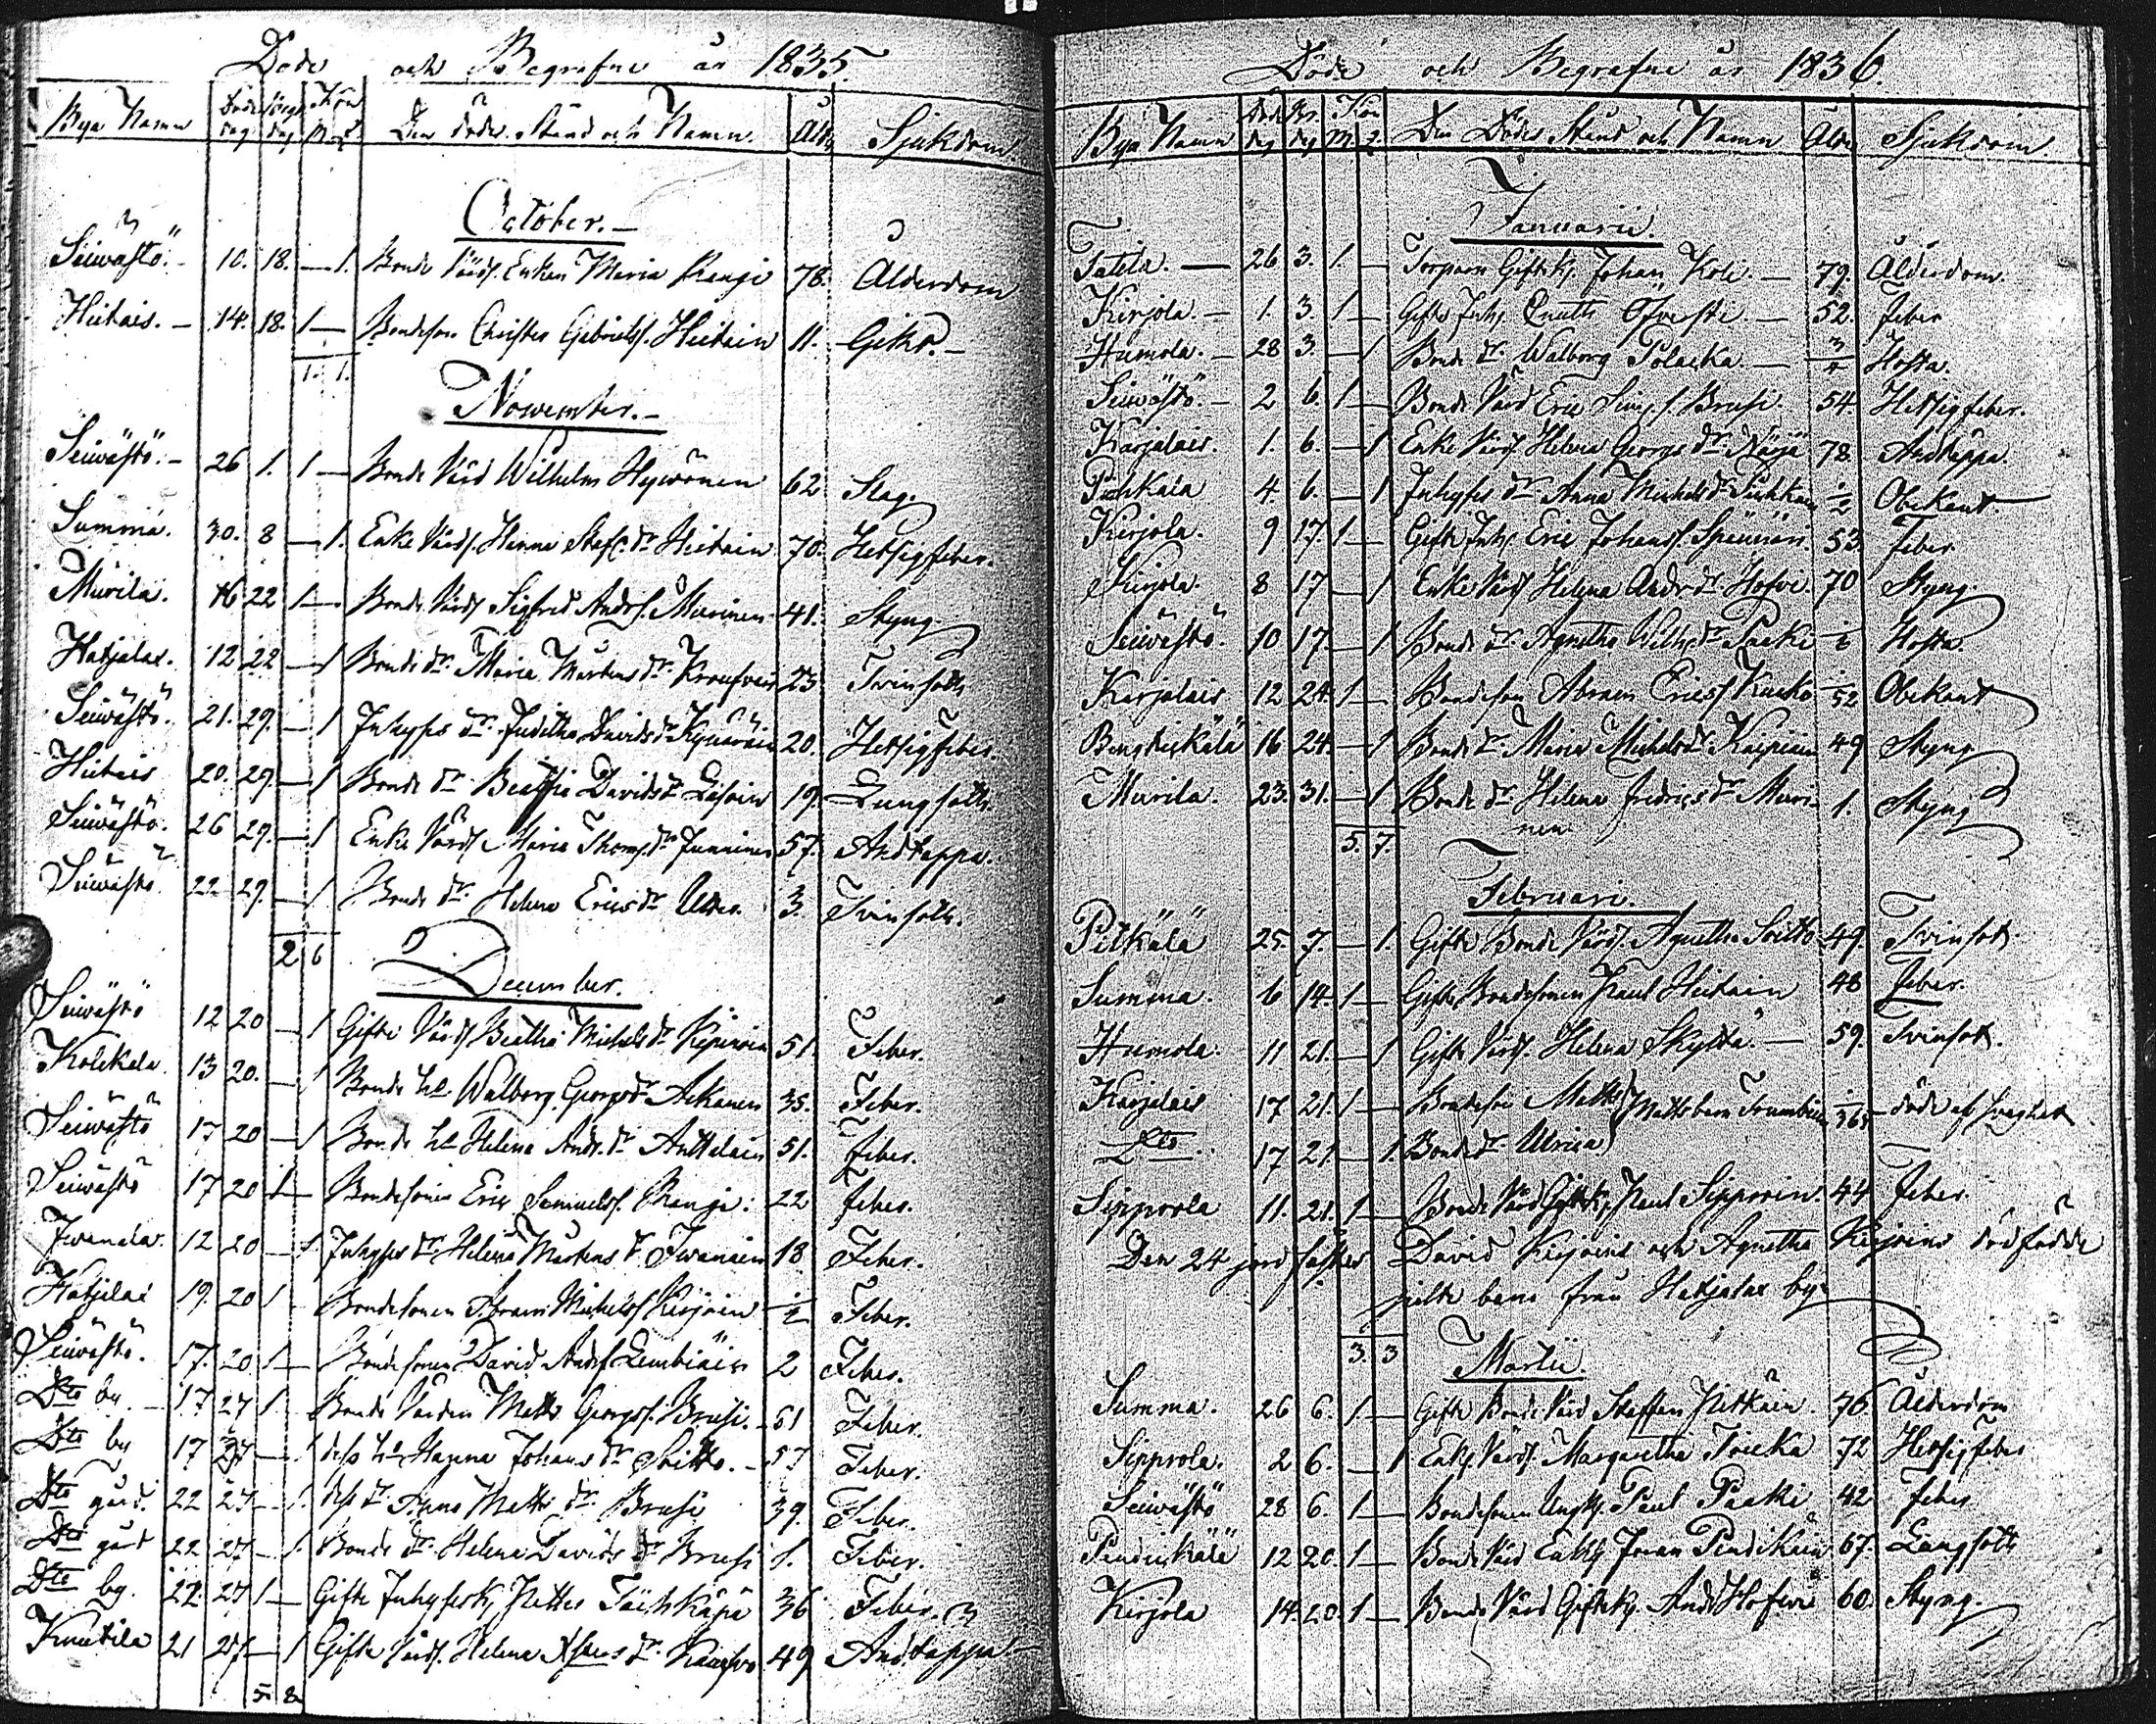 Döde och Begrafne år 1835.
Bya Namn Döde dag Begr. dag Kön M. Q. Den dödes Stånd och Namn. Ålder Sjukdom.
October.
Seiwästö. 10. 18. — 1. Bonde Värds. Enkan Maria Rangi 78. Ålderdom
Hietais. 14. 18. 1 — Bondeson Christer Gabriels. Hietain 11. Gikt.
1. 1.
November.
Seiwästö. 26 1. 1 — Bonde Värd Wilhelm Hywönen 62 Slag.
Summa. 30. 8 — 1. Enke Värds. Hanna Staf. dr Hietain 70. Hetsigfeber.
Murila. 16 22 1 — Bonde Värds Sigfrid Anders. Murinen 41. Styng
Hatjalax. 12 22 — 1 Bonde dr Maria Mårtens dr 23 Tvinsoth
Seiwästö. 21. 29. — 1 Inhyses dr Juditha Davids dr 20. Hetsigfeber.
Hietais 20. 29. — 1 Bonde dr Beatha Davids dr 19. Lungsoth.
Seiwästö. 26 29. — 1 Enke Värds Maria Thoms. dr 57. Andtäppa.
Seiwästö. 22 29. — 1 Bonde dr Helena Erics dr 3. Tvinsoth.
2 6
December.
Seiwästö 12 20 — 1 Gifte Värds Beatha Michels dr 51. Feber.
Kolckala 13 20. — 1 Bonde h. Walborg Georgs dr 35. Feber.
Seiwästö 17 20 — 1 Bonde h. Helena And. dr Anttalain 51. Feber.
Seiwästö 17 20 1 — Bondesonen Eric Samuels. Rangi. 22 feber.
Iwanala. 12 20 — 1 Inhyses dr Helena Mårtens dr Iwanain 18 Feber.
Hatjelax 19. 20 1 — Bondesonen Abram Michels. Kirjoin Feber.
Seiwästö. 17. 20 1 — Bondesonen David Ands. Lembiäin 2 Feber.
Dto by. 17 27 1. Bonde Värden Matts Georgs. Brusi. 61 Feber.
Dto by 17 27 — 1 dess h. Hanna Johans dr Soitto. 57 Feber.
Dto gård. 22 27 — 1. dess dr Anna Matts dr Brusi 39. Feber.
Dto gård 22 27 — 1. Bonde dr Helena Davids dr Brusi 1. Feber.
Dto by. 22 27 1 — Gifte Inhyses k. Petter 36 Feber.
Knutila 21 27 — 1 Gifte Värds. Helena dr 49 Andtäppa
5 8
Döde och Begrafne år 1836.
Bya Namn Döde dag Br. dag Kön M. Q. Den Dödes Stånd och Namn Ålder Sjukdom
Januarii.
Tatila. 26 3. 1. — Torparn Giftk. Johan Koli. 79. Ålderdom.
Kirjola. 1. 3. 1 — Gifte Inh. Ofversti. 52. feber
Humola. 28 3. — 1 Bonde dr Walborg Polacka. Hosta.
Seiwästö. 2 6. 1 — Bonde Värd Eric Brusi. 54 Hetsigfeber.
Karjalais. 1. 6. — 1 Enke Värds. Helena Georgs dr 78. Andtäppa.
Puhkala 4. 6. — 1 Inhyses dr Anna Michels dr Obekant
Kirjola. 9 17. 1 — Gifte Inh. Eric Johans. 53. Feber
Kirjola. 8 17 — 1 Enke Värds Helena Anders dr Hofvi. 70 Styng
Seiwästö. 10 17. — 1 Bonde dr Agnetha Wilh. dr Paaki Hosta.
Karjalais 12 24. 1 — Bondeson Abram Erics. 52 Obekant
16 24. — 1 Bonde dr Maria Michels dr 49 Styng
Murila. 23. 31. — 1 Bonde dr Helena Fredrics dr Muri- 1. Styng
nen
5. 7.
Februari.
Pitkälä 25. 7. — 1. Gifte Bonde Värds. Agnetha Soitto 49. Tvinsot.
Summa. 6 14. 1 — Gifte Bondesonen Paul Hietain 48 Feber.
Humola. 11 21. — 1 Gifte Värds. Helena Skyttä. 59. Tvinsot.
Karjelais 17 21. 1 — Bondeson Matts Matts barn 365 döde af svaghet
Dto. 17 21. — 1. Bonde dr Ulrica
Sipprola 11. 21. 1 — Bonde Värd Giftk. Paul Sipproin 44 feber.
Den 24 jord fästes David Kirjoins och Agnetha Kirjoins dödfödde
pilte barn från Hatjalax by
3. 3
Martii.
Summa. 26 6. 1 — Gifte Bonde Värd Staffan Pitkäin. 76 Ålderdom
Sipprola. 2 6. — 1 Enk. Värds. Margaretha 72 Hetsigfeber
Seiwästö 28 6. 1 — Bondesonen Ungk. Paul Paaki 42 feber
Pendickälä 12 20. 1 — Bonde Värd Enkl. Joran Pendikäin 67. Lungsoth
Kirjola 14. 20. 1 — Bonde Värd Giftk. And. Hofwi 60. Styng.